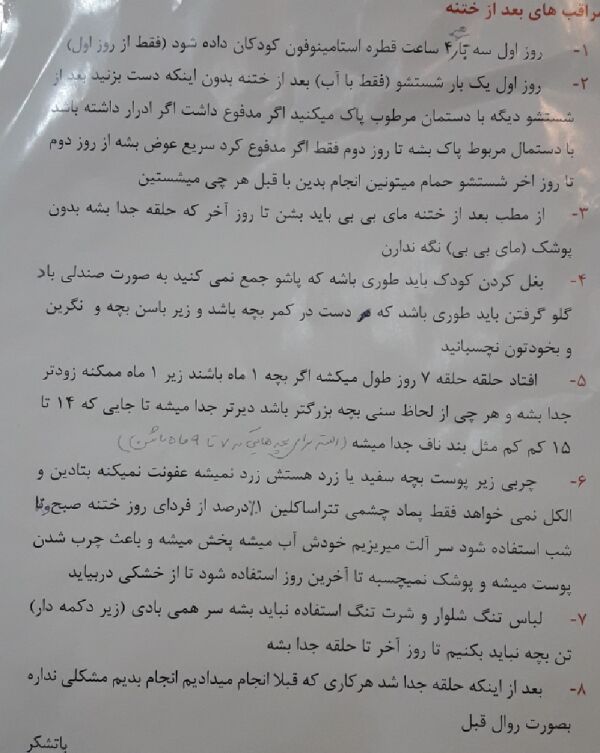 مراقب های بعد از ختنه
۱- روز اول سه بار ۴ ساعت قطره استامینوفون کودکان داده شود (فقط از روز اول)
۲- روز اول یک بار شستشو (فقط با آب) بعد از ختنه بدون اینکه دست بزنید بعد از
شستشو دیگه با دستمان مرطوب پاک میکنید اگر مدفوع داشت اگر ادرار داشته باشد
با دستمال مربوط پاک بشه تا روز دوم فقط اگر مدفوع کرد سریع عوض بشه از روز دوم
تا روز اخر شستشو حمام میتونین انجام بدین با قبل هر چی میشستین
۳- از مطب بعد از ختنه مای بی بی باید بشن تا روز آخر که حلقه جدا بشه بدون
پوشک (مای بی بی) نگه ندارن
۴- بغل کردن کودک باید طوری باشه که پاشو جمع نمی کنید به صورت صندلی باد
گلو گرفتن باید طوری باشد که هر دست در کمر بچه باشد و زیر باسن بچه و نگرین
و بخودتون نچسبانید
۵- افتاد حلقه حلقه ۷ روز طول میکشه اگر بچه ۱ ماه باشند زیر ۱ ماه ممکنه زودتر
جدا بشه و هر چی از لحاظ سنی بچه بزرگتر باشد دیرتر جدا میشه تا جایی که ۱۴ تا
۱۵ کم کم مثل بند ناف جدا میشه (البته برای بچه هایی که ۷ تا ۹ ماه باشن)
۶- چربی زیر پوست بچه سفید یا زرد هستش زرد نمیشه عفونت نمیکنه بتادین و
الکل نمی خواهد فقط پماد چشمی تتراساکلین ۱٪ درصد از فردای روز ختنه صبح و تا
شب استفاده شود سر آلت میریزیم خودش آب میشه پخش میشه و باعث چرب شدن
پوست میشه و پوشک نمیچسبه تا آخرین روز استفاده شود تا از خشکی دربیاید
۷- لباس تنگ شلوار و شرت تنگ استفاده نباید بشه سر همی بادی (زیر دکمه دار)
تن بچه نباید بکنیم تا روز آخر تا حلقه جدا بشه
۸- بعد از اینکه حلقه جدا شد هرکاری که قبلا انجام میدادیم انجام بدیم مشکلی نداره
بصورت روال قبل
باتشکر